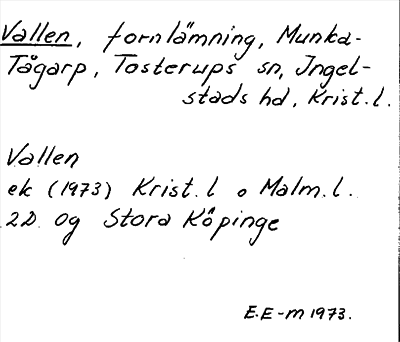 Vallen, fornlämning, Munka-
Tågarp, Tosterups sn, Ingel-
stads hd, Krist.l.
Vallen
ek (1973) Krist.l o Malm.l.
2D og Stora Köpinge
E.E-m 1973.